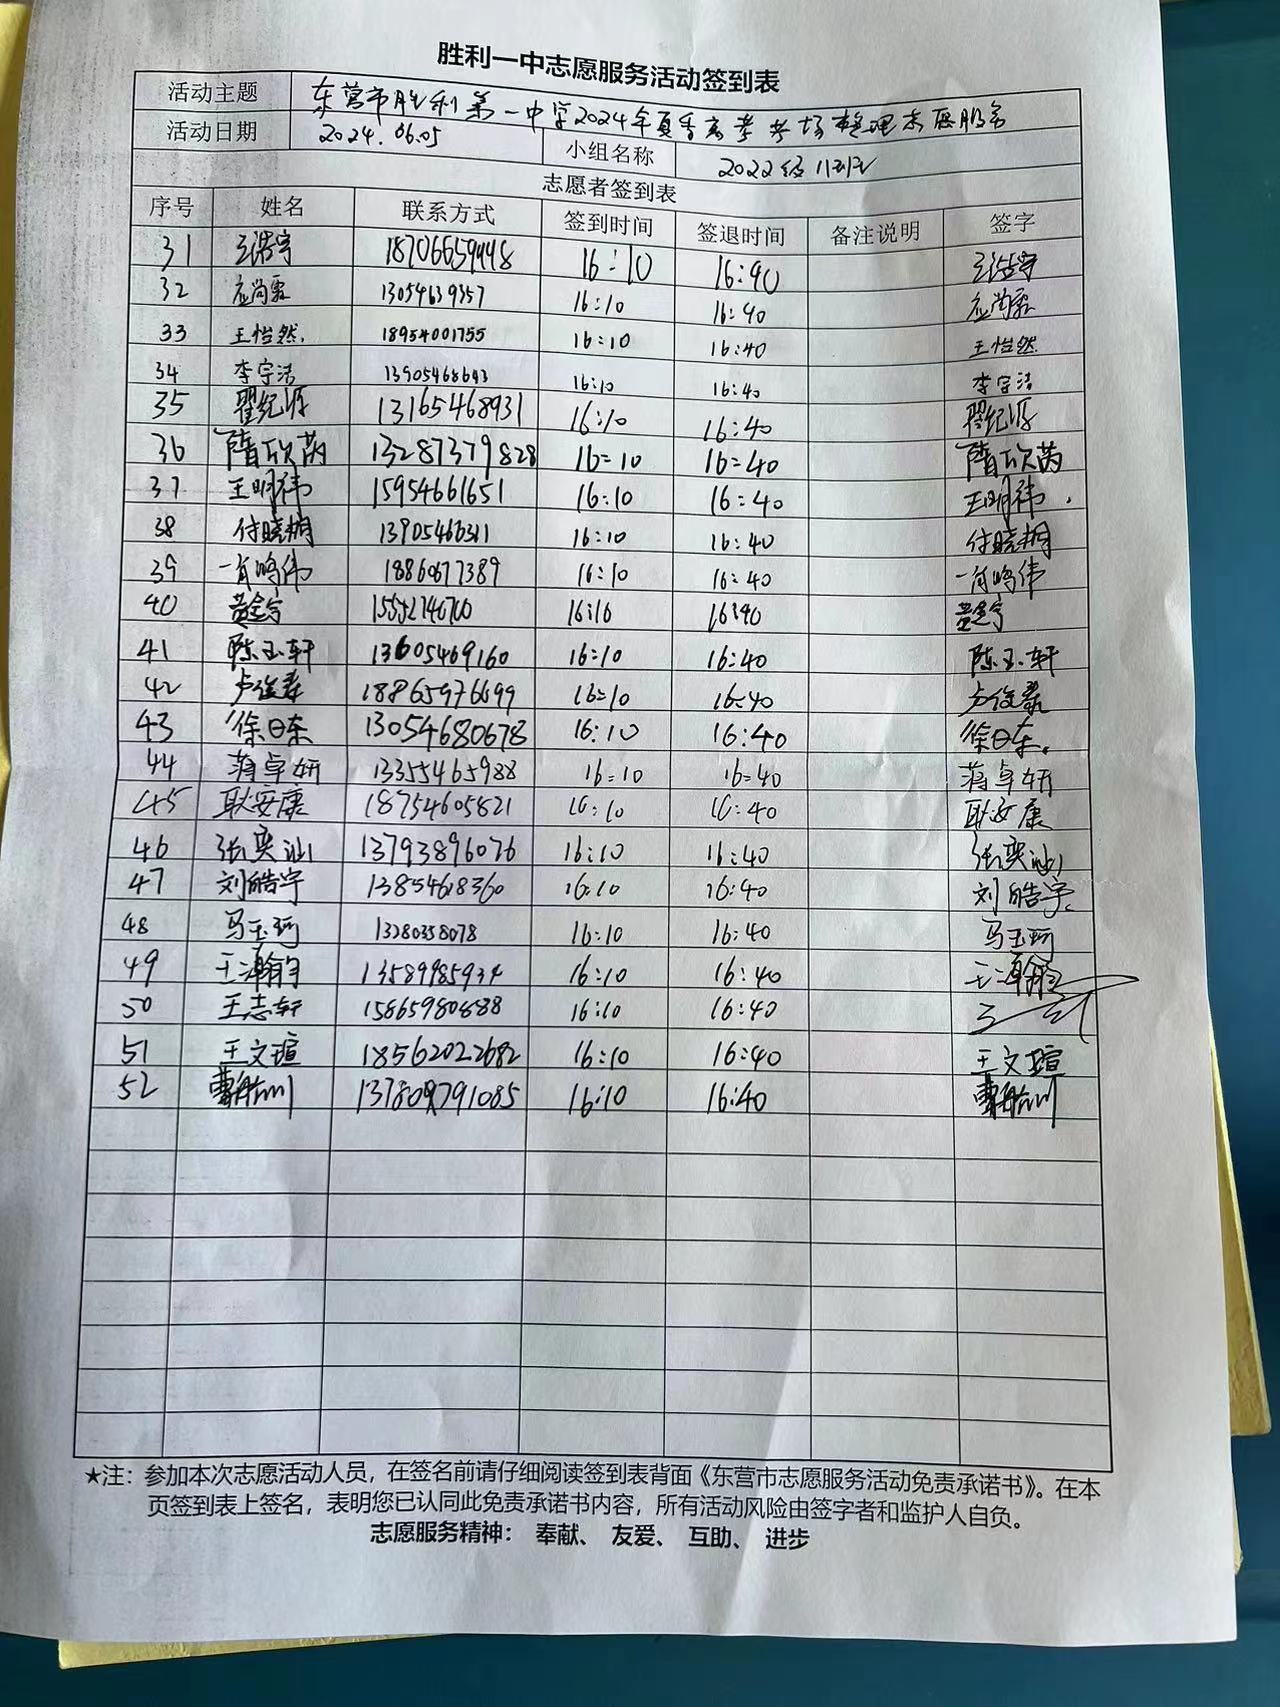 胜利一中志愿服务活动签到表
活动主题 东营市胜利第一中学2024年夏季高考考场整理志愿服务
活动日期 2024.06.05 小组名称 2022级11班
志愿者签到表
序号 姓名 联系方式 签到时间 签退时间 备注说明 签字
31 王浩宇 18706659448 16:10 16:40 王浩宇
32 13054639357 16:10 16:40
33 王怡然 18954001755 16:10 16:40 王怡然
34 李宇洁 13905468643 16:10 16:40 李宇洁
35 翟纪源 13165468931 16:10 16:40 翟纪源
36 隋欣芮 13287379828 16:10 16:40 隋欣芮
37 王明祎 15954661651 16:10 16:40 王明祎
38 付晓楠 16:10 16:40 付晓楠
39 肖鸣伟 18860677389 16:10 16:40 肖鸣伟
40 16:10 16:40
41 陈玉轩 13605469160 16:10 16:40 陈玉轩
42 卢俊泰 18865976699 16:10 16:40 卢俊泰
43 徐日东 13054680678 16:10 16:40 徐日东
44 蒋卓妍 13355465988 16:10 16:40 蒋卓妍
45 耿安康 18754605821 16:10 16:40 耿安康
46 张奕汕 13793896076 16:10 16:40 张奕汕
47 刘皓宇 13854618360 16:10 16:40 刘皓宇
48 马玉珂 13280358078 16:10 16:40 马玉珂
49 王瀚钧 13589985934 16:10 16:40
50 王志轩 15865980838 16:10 16:40
51 王文瑄 18562022682 16:10 16:40 王文瑄
52 曹航川 16:10 16:40 曹航川
★注：参加本次志愿活动人员，在签名前请仔细阅读签到表背面《东营市志愿服务活动免责承诺书》。在本
页签到表上签名，表明您已认同此免责承诺书内容，所有活动风险由签字者和监护人自负。
志愿服务精神： 奉献、 友爱、 互助、 进步